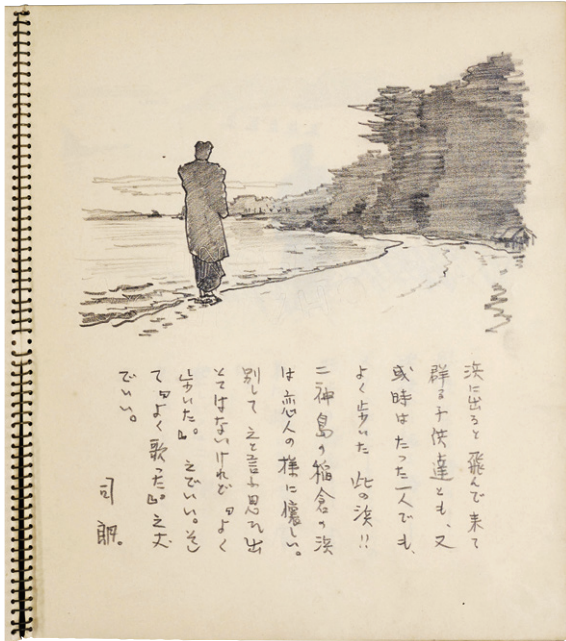 浜に出ると飛んで来て
群る子供達とも、又
或時はたった一人でも、
よく歩いた此の浜!!
二神島の稲倉の浜
は恋人の様に懐しい。
別して之と言ふ思ひ出
とてはないけれど『よく
歩いた。』之でいい。そし
て『よく歌った。』之丈
でいい。
司朗。